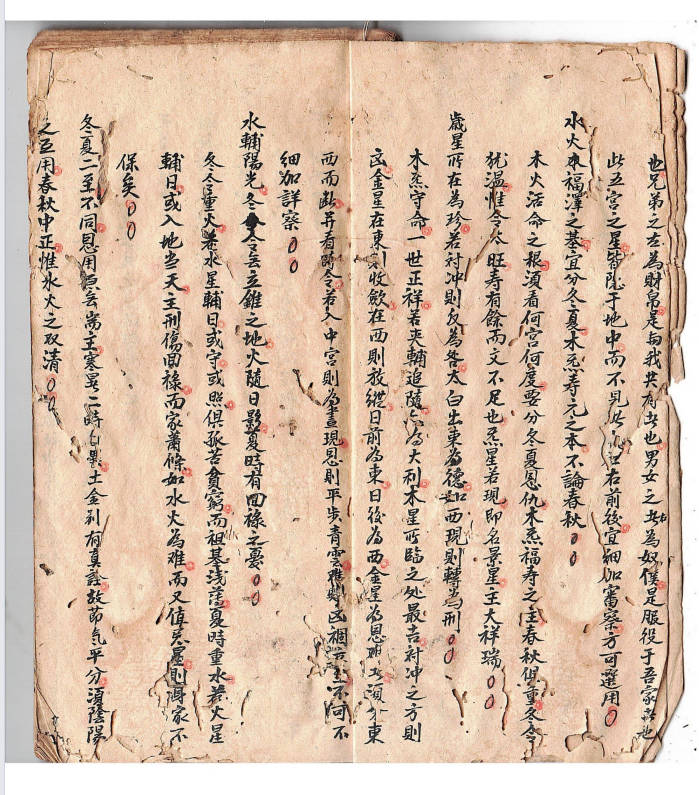 也兄弟之左為財帛是与我共有者也男女之為奴僕是服役于吾家者也
此五宮之星皆陷于地中而不見右前後宜細加審察方可選用
水火本福澤之基宜分冬夏木炁寿元之本不論春秋
木火活命之根須看何宮何度要分冬夏恩仇木炁福寿之主春秋俱重冬令
犹温惟令太旺寿有餘而文不足也炁星若現即名景星主大祥瑞
歲星所在為珍若对冲則反為咎太白出東為德如西現則轉為刑
木炁守命一世正祥若夾輔追隨亦為大利木星所臨之处最吉对冲之方則
凶金星在東則收歛在西則放縱日前為東日後為西金星為恩須分東
西而断并看節令若入中宮則為晝現恩則平步青雲难則凶禍不可不
細加詳察
水輔陽光冬令無立錐之地火隨日影夏時有回祿之憂
冬令重火若水星輔日或守或照俱孤苦貧窮而祖基浅薄夏時重水若火星
輔日或入地当天主刑傷回祿而家蕭條如水火為难而又值忌星則身家不
保矣
冬夏二至不同恩用須主寒暑二時土金别有真詮故節気平分須陰陽
之互用春秋中正惟水火之双清